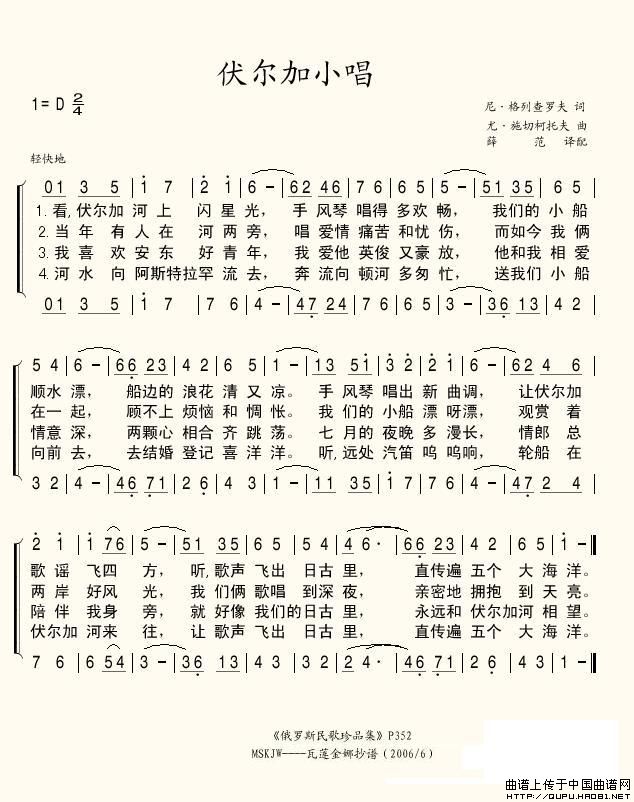 伏尔加小唱
1=D 2/4
尼·格列查罗夫 词
尤·施切柯托夫 曲
薛 范 译配
轻快地
01 3 5 | i 7 | 2̇ i | 6 - | 62 46 | 7 6 | 6 5 | 5 - | 51 35 | 6 5 |
1.看,伏尔加 河上 闪星光, 手风琴 唱得多欢畅, 我们的小船
2.当年 有人在 河两旁, 唱爱情痛苦和忧伤, 而如今我俩
3.我喜欢安东 好青年, 我爱他英俊又豪放, 他和我相爱
4.河水 向阿斯特拉罕 流去, 奔流向顿河多匆忙, 送我们小船
01 3 5 | i 7 | 7 6 | 4 - | 47 24 | 7 6 | 6 5 | 3 - | 36 13 | 4 2 |
5 4 | 6 - | 66 23 | 4 2 | 6 5 | 1 - | 13 51 | 3 2 | 2 i | 6 - | 62 4 6 |
顺水漂, 船边的 浪花清又凉。 手风琴唱出新曲调, 让伏尔加
在一起, 顾不上烦恼和惆怅。 我们的小船漂呀漂, 观赏着
情意深, 两颗心相合齐跳荡。 七月的夜晚多漫长, 情郎总
向前去, 去结婚登记喜洋洋。 听,远处汽笛呜呜响, 轮船在
3 2 | 4 - | 46 71 | 2 6 | 4 3 | 1 - | 11 35 | i 7 | 7 6 | 4 - | 47 2 4 |
2̇ i | i 76 | 5 - | 51 35 | 6 5 | 5 4 | 4 6· | 66 23 | 4 2 | 6 5 | 1 - ‖
歌谣飞四方, 听,歌声飞出日古里, 直传遍五个大海洋。
两岸好风光, 我们俩歌唱到深夜, 亲密地拥抱到天亮。
陪伴我身旁, 就好像我们的日古里, 永远和伏尔加河相望。
伏尔加河来往, 让歌声飞出日古里, 直传遍五个大海洋。
7 6 | 6 54 | 3 - | 36 13 | 4 3 | 3 2 | 2 4· | 46 71 | 2 6 | 4 3 | 1 - ‖
《俄罗斯民歌珍品集》P352
MSKJW----瓦莲金娜抄谱(2006/6)
曲谱上传于中国曲谱网
HTTP://QUPU.HAO81.NET